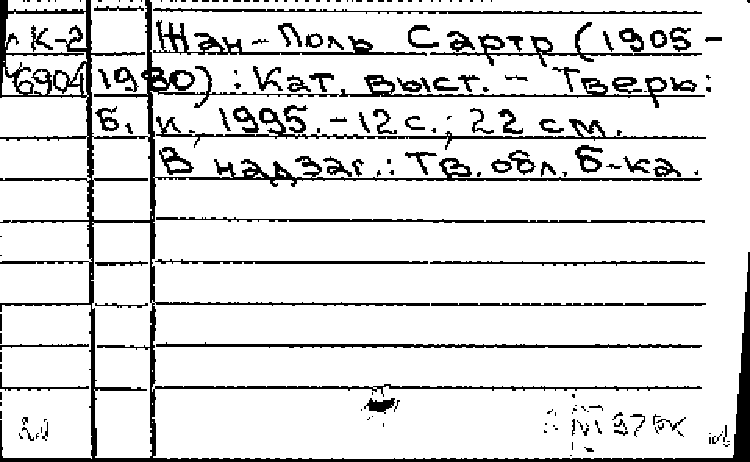 К-2 Жан-Поль Сартр (1905-
6904 1980) : Кат. выст. - Тверь:
Б. и., 1995. - 12 с.; 22 см.
В надзаг.: Тв. обл. б-ка.